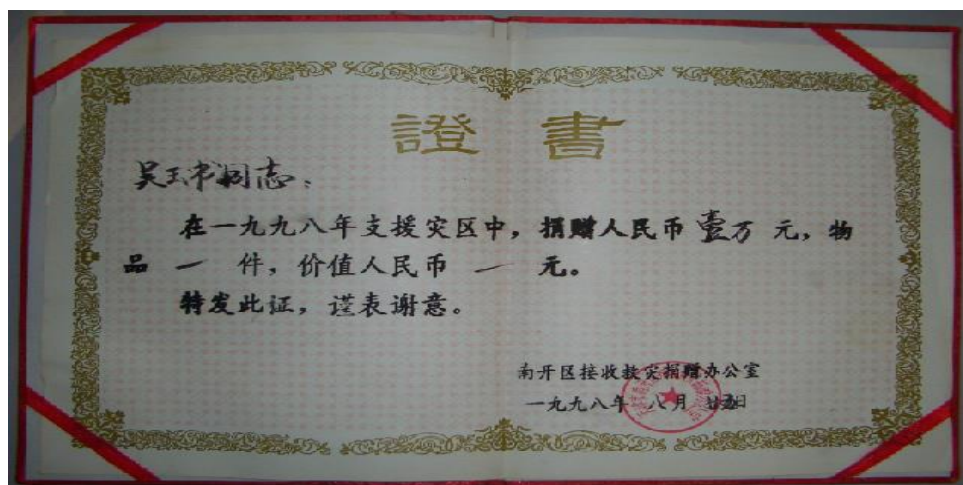 證書
吴玉书同志：
在一九九八年支援灾区中，捐赠人民币壹万元，物
品 一 件，价值人民币 一 元。
特发此证，谨表谢意。
南开区接收救灾捐赠办公室
一九九八年 八月 廿五日